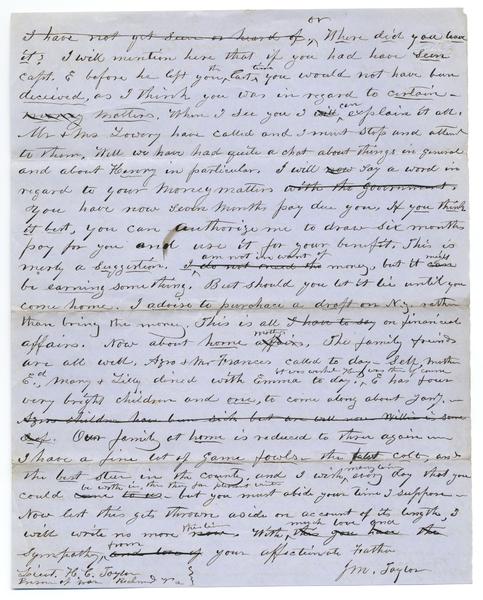 I have not yet seen or heard of, or Where did you leave
it? I will mention here that if you had have seen
Capt. E before he left you, the last time you would not have been
deceived, as I think you was in regard to certain
matters. When I see you I will can explain it all.
Mr & Mrs Lovory have called and I must stop and attend
to them. Well we have had quite a chat about things in general
and about Henry in particular. I will now say a word in
regard to your Money matters with the government.
You have now Seven Months pay due you. If you think
it best, you can authorize me to draw six months
pay for you and use it for your benefit. This is
merly a suggestion. I do not need the am not in want of money, but it can might
be earning something. But should you let it lie until you
come home. I advise to purchace a draft on N.Y. rather
than bring the money. This is all I have to say on financial
affairs. Now about home affairs matters. The family friends
are all well. Azro & Mr Frances called to day. Self, Mother
Ed, Mary & Lilly dined with Emma to day. E has four
very bright children and one, to come along about Jany.
Azros children have been sick but are well now Willie is some
def. Our family at home is reduced to three again
I have a fine lot of game fowls the best colts, and
the best steer in the county, and I wish every day that you
could but you must abide your time I suppose
Now lest this gets thrown aside on account of its length, I
will write no more now. With much love and
Sympathy, and love of from your affectionate Father
J M. Taylor
Lieut. H. C. Taylor
Prison of War Richmd Va